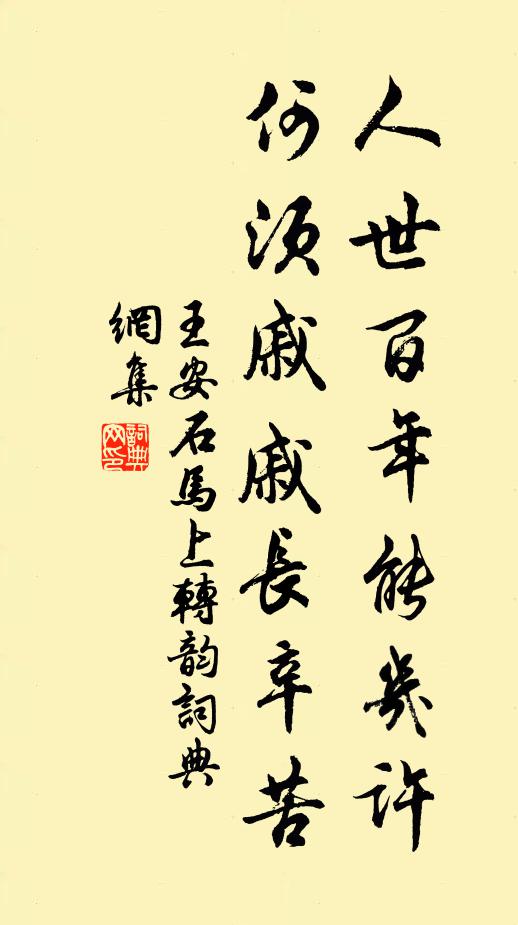 人世百年能幾許
何須戚戚長辛苦
王安石馬上轉韵詞典
網集
詞典
网印